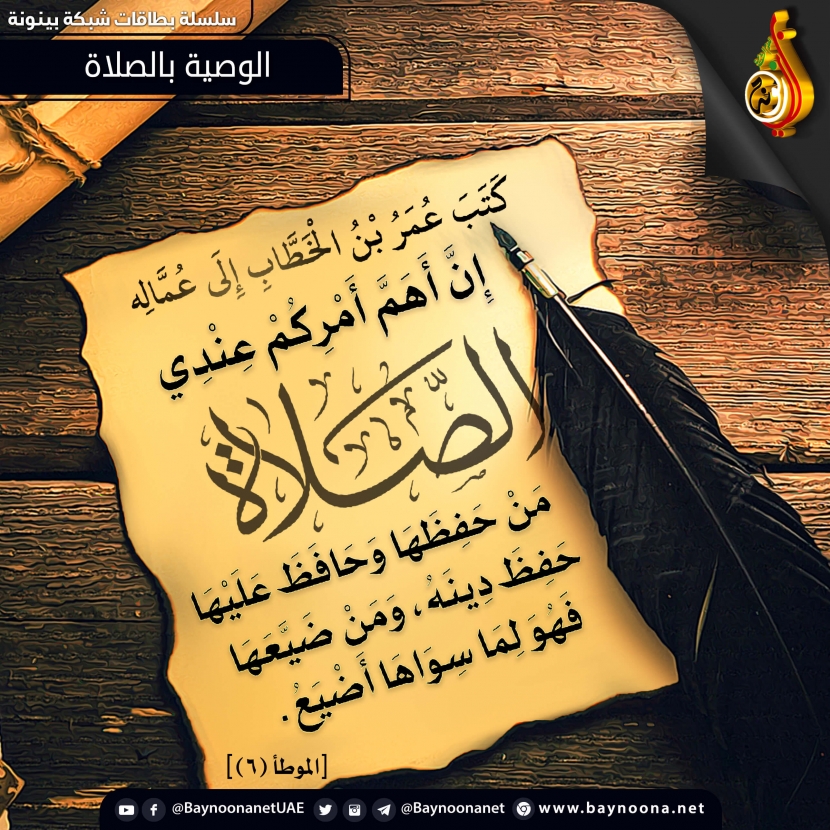 سلسلة بطاقات شبكة بينونة
الوصية بالصلاة
كَتَبَ عُمَرُ بْنُ الْخَطَّابِ إِلَى عُمَّالِه
إِنَّ أَهَمَّ أَمْرِكُمْ عِنْدِي
الصَّلَاة
مَنْ حَفِظَهَا وَحَافَظَ عَلَيْهَا
حَفِظَ دِينَهُ، وَمَنْ ضَيَّعَهَا
فَهُوَ لِمَا سِوَاهَا أَضْيَعُ.
[الموطأ (٦)]
@BaynoonanetUAE @Baynoonanet www.baynoona.net